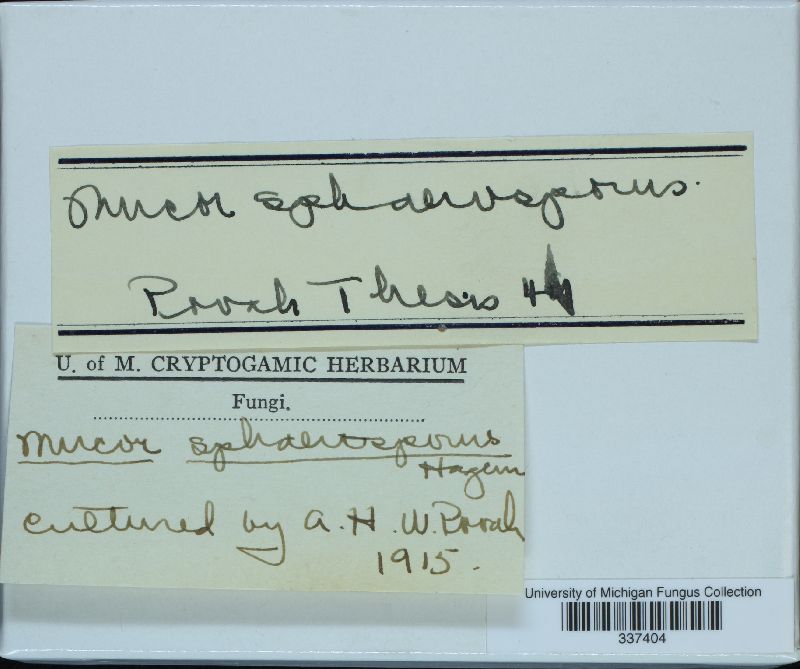 Mucor sphaerosporus.
Povah Thesis
U. of M. CRYPTOGAMIC HERBARIUM
Fungi.
Mucor sphaerosporus
Hagem
cultured by A. H. W. Povah
1915.
University of Michigan Fungus Collection
337404